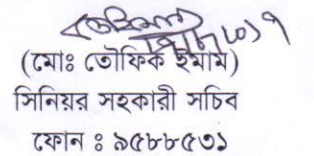 (মোঃ তৌফিক ইমাম)
সিনিয়র সহকারী সচিব
ফোন ঃ ৯৫৮৮৫৩১